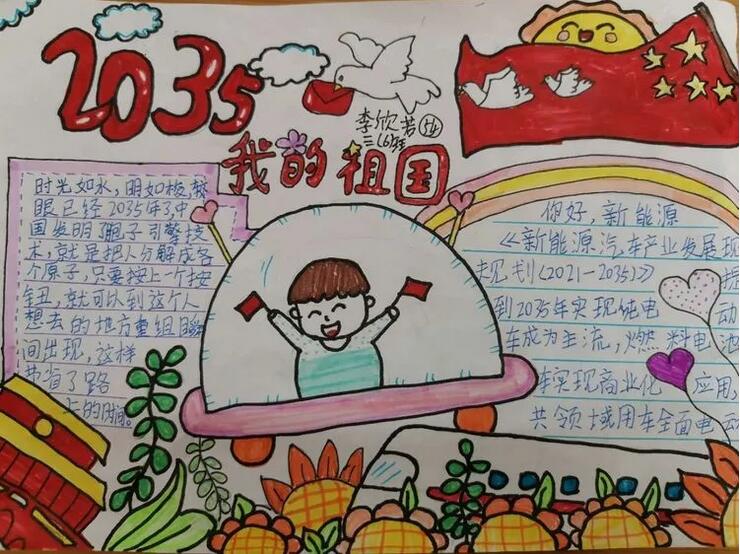 2035
李欣芳 54
三(6)班
我的祖国
时光如水,明如梭,转
眼已经2035年了,中
国发明了孢子引擎技
术,就是把人分解成各
个原子,只要按上一个按
钮,就可以到这个人
想去的地方重组
间出现,这样
节省了路
上的时间。
你好,新能源
《新能源汽车产业发展
规划(2021-2035)》提
到2035年实现纯电动
车成为主流,燃料电池
车实现商业化应用,
共领域用车全面电动